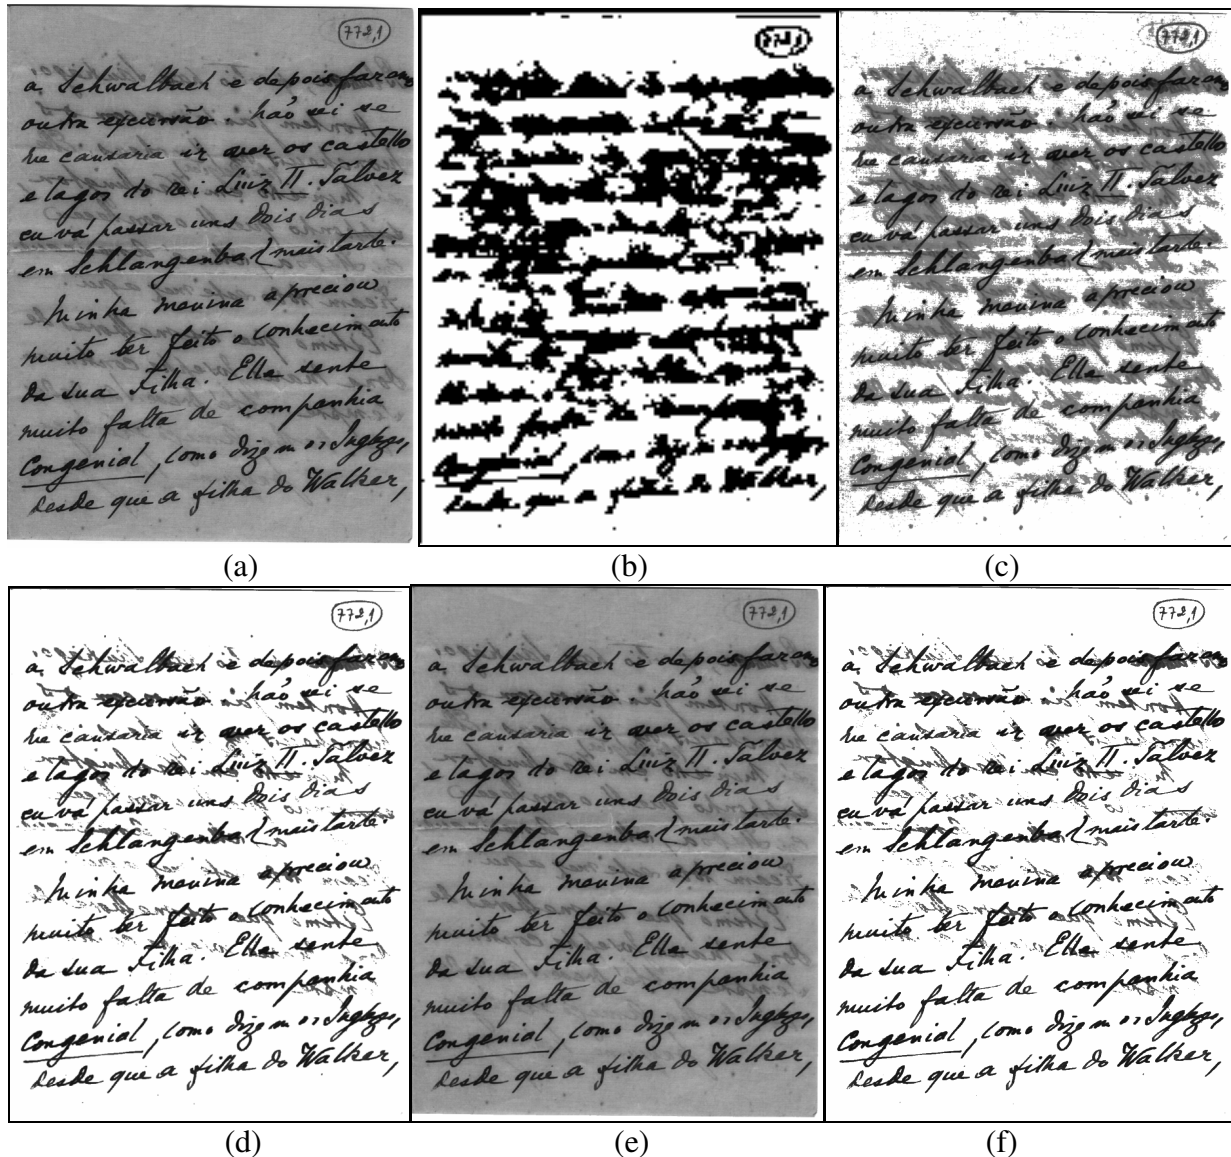 772,1
a Schwalbach e depois
outra excursão. Não sei se
causaria ir ver os castello
e lagos do rei Luiz II. Talvez
eu vá passar uns dois dias
em Schlangenbad mais tarde.
Minha menina apreciou
muito ter feito o conhecimento
da sua Filha. Ella sente
muito falta de companhia
Congenial, como dizem os Inglezes,
desde que a filha do Walker,
(a)
772,1
Congenial, como dizem
desde que a filha do Walker,
(b)
772,1
a Schwalbach e depois
outra excursão. Não sei se
causaria ir ver os castello
e lagos do rei Luiz II. Talvez
eu vá passar uns dois dias
em Schlangenbad mais tarde.
Minha menina apreciou
muito ter feito o conhecimento
da sua Filha. Ella sente
muito falta de companhia
Congenial, como dizem os Inglezes,
desde que a filha do Walker,
(c)
772,1
a Schwalbach e depois
outra excursão. Não sei se
causaria ir ver os castello
e lagos do rei Luiz II. Talvez
eu vá passar uns dois dias
em Schlangenbad mais tarde.
Minha menina apreciou
muito ter feito o conhecimento
da sua Filha. Ella sente
muito falta de companhia
Congenial, como dizem os Inglezes,
desde que a filha do Walker,
(d)
772,1
a Schwalbach e depois
outra excursão. Não sei se
causaria ir ver os castello
e lagos do rei Luiz II. Talvez
eu vá passar uns dois dias
em Schlangenbad mais tarde.
Minha menina apreciou
muito ter feito o conhecimento
da sua Filha. Ella sente
muito falta de companhia
Congenial, como dizem os Inglezes,
desde que a filha do Walker,
(e)
772,1
a Schwalbach e depois
outra excursão. Não sei se
causaria ir ver os castello
e lagos do rei Luiz II. Talvez
eu vá passar uns dois dias
em Schlangenbad mais tarde.
Minha menina apreciou
muito ter feito o conhecimento
da sua Filha. Ella sente
muito falta de companhia
Congenial, como dizem os Inglezes,
desde que a filha do Walker,
(f)